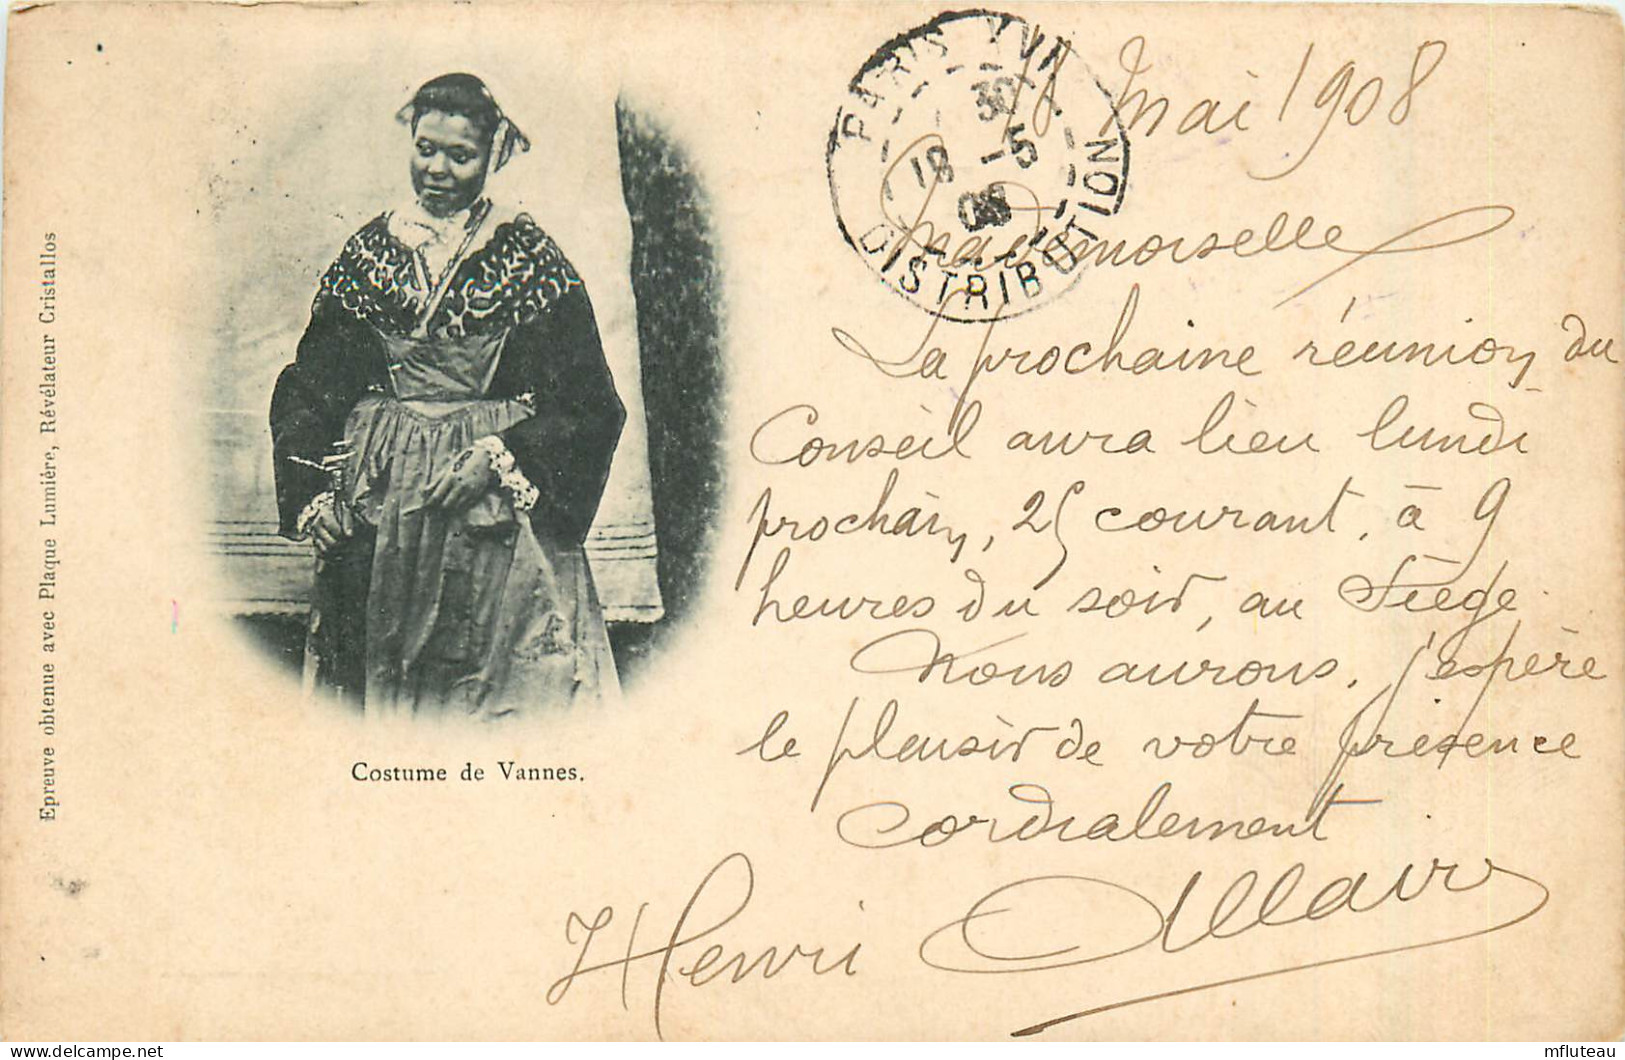 Mai 1908
PARIS XVII
18 30 -5 08
DISTRIBUTION
Mademoiselle
La prochaine réunion du
Conseil aura lieu lundi
prochain, 25 courant, à 9
heures du soir, au Siège.
Nous aurons, j'espère
le plaisir de votre présence
Cordialement
Henri Allair
Costume de Vannes.
Epreuve obtenue avec Plaque Lumière, Révélateur Cristallos
delcampe.net
mfluteau